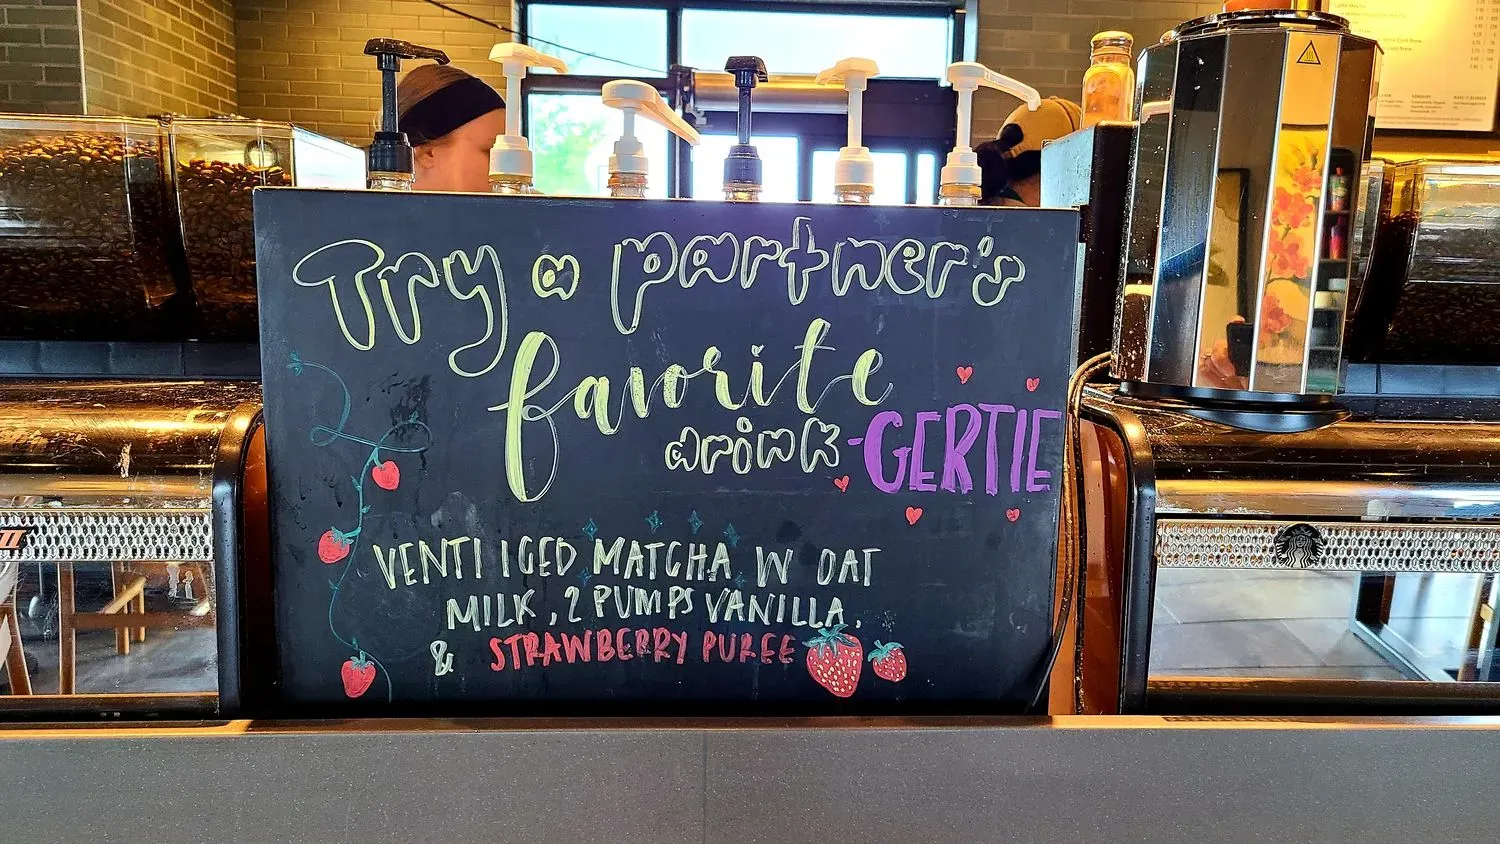 Try a partner's
favorite
drink-GERTIE
VENTI ICED MATCHA W OAT
MILK, 2 PUMPS VANILLA,
& STRAWBERRY PUREE